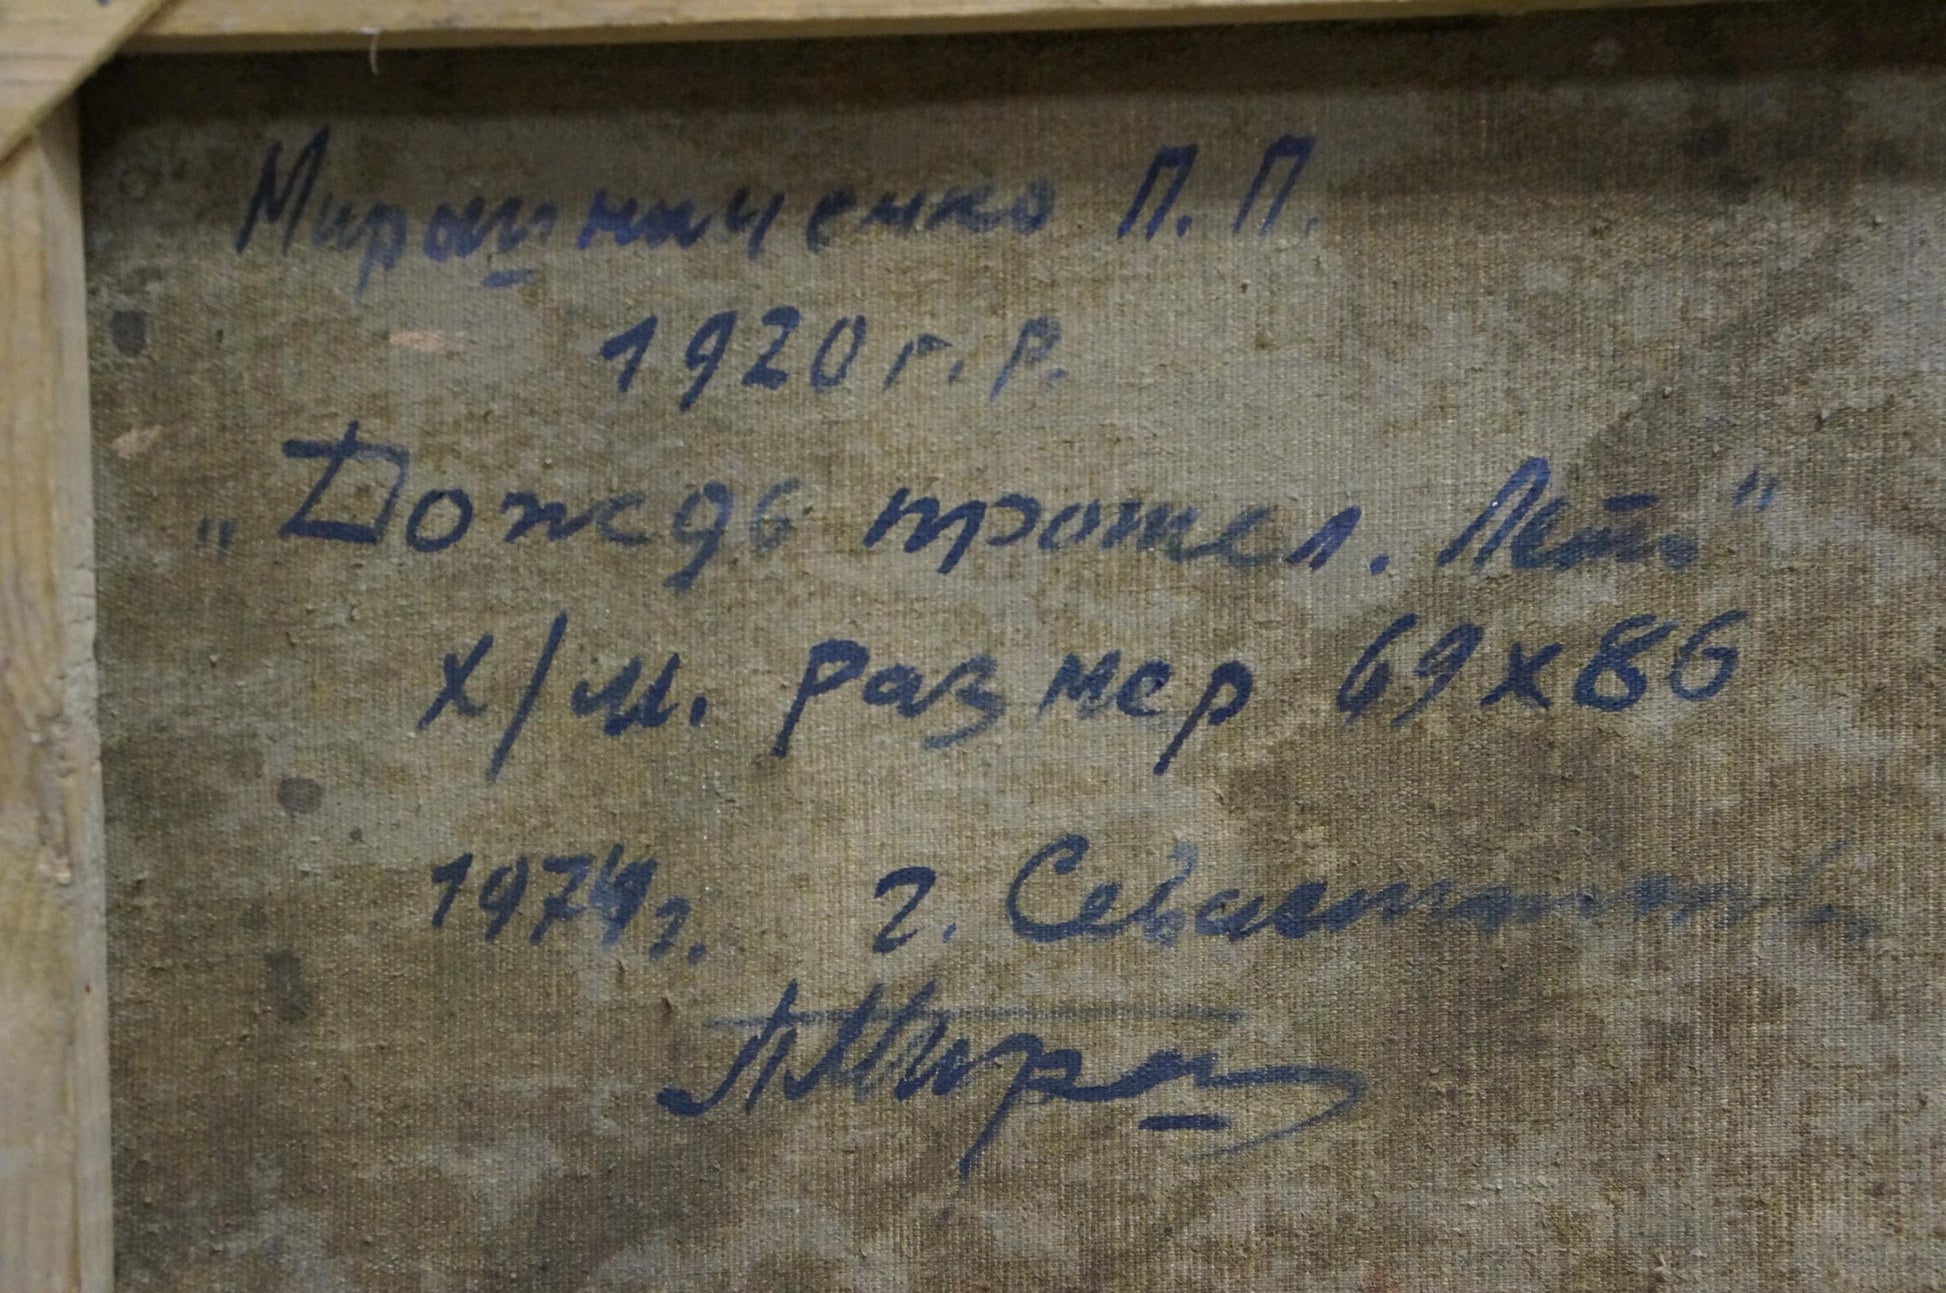 Мирошниченко П. П.
1920 г. р.
„Дождь прошел. Лето"
х/м. размер 69х86
1974г. г. Севастополь
ПМирош